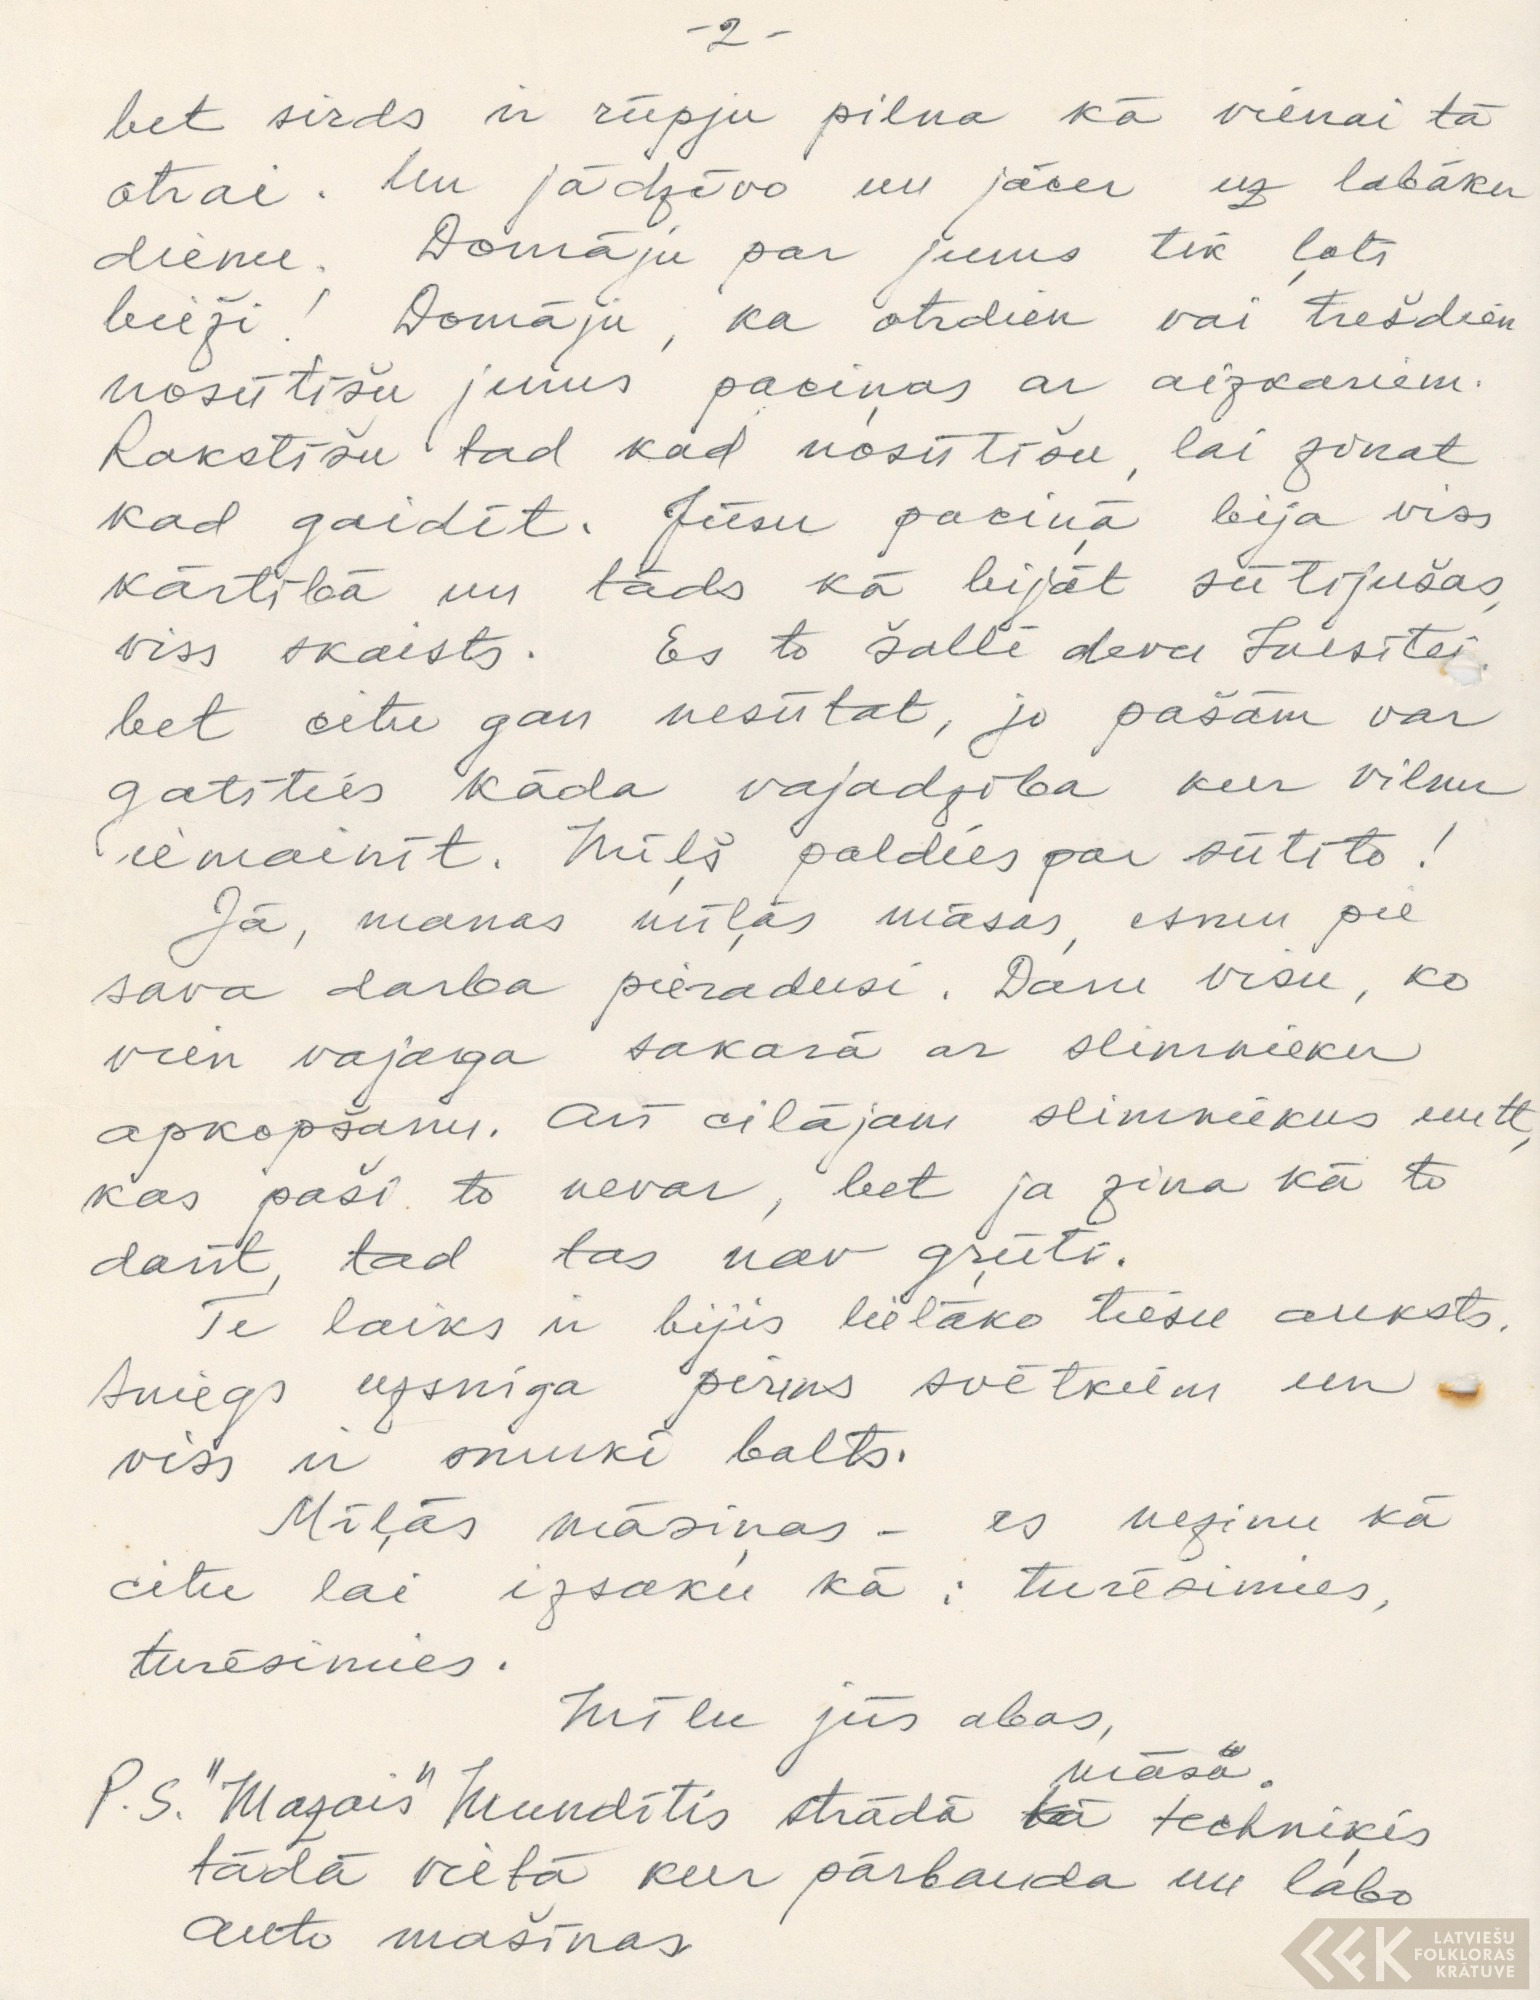 -2-
bet sirds ir rūpju pilna kā vienai tā
otrai. Un jādzīvo un jācer uz labāku
dienu. Domāju par jums tik ļoti
bieži! Domāju, ka otrdien vai trešdien
nosūtīšu jums paciņas ar aizkariem.
Rakstīšu tad kad nosūtīšu, lai zinat
kad gaidīt. Jūsu paciņā bija viss
kārtībā un tāds kā bijāt sūtījušas,
viss skaists. Es to šalli devu
bet citu gan nesūtat, jo pašām var
gatīties kāda vajadzība kur vilnu
iemainīt. Mīļš paldies par sūtīto!
Jā, manas mīļās māsas, esmu pie
sava darba pieradusi. Daru visu, ko
vien vajaga sakarā ar slimnieku
apkopšanu. Arī cilājam slimniekus
kas paši to nevar, bet ja zina kā to
darīt, tad tas nav grūti.
Te laiks ir bijis lielāko tiesu auksts.
Sniegs uzsniga pirms svētkiem un
viss ir smuki balts.
Mīļās māsiņas - es nezinu kā
citu lai izsaku kā: turēsimies,
turēsimies.
Mīlu jūs abas,
māsa.
P.S. "Mazais" Mundītis strādā kā techniķis
tādā vietā kur pārbauda un labo
auto mašīnas
LATVIEŠU
FOLKLORAS
KRĀTUVE